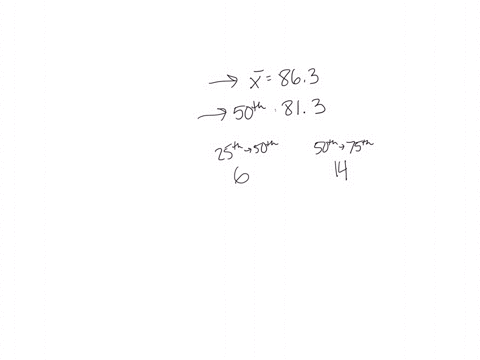 → x̄ = 86.3
→ 50th · 81.3
25th → 50th 50th → 75th
6 14